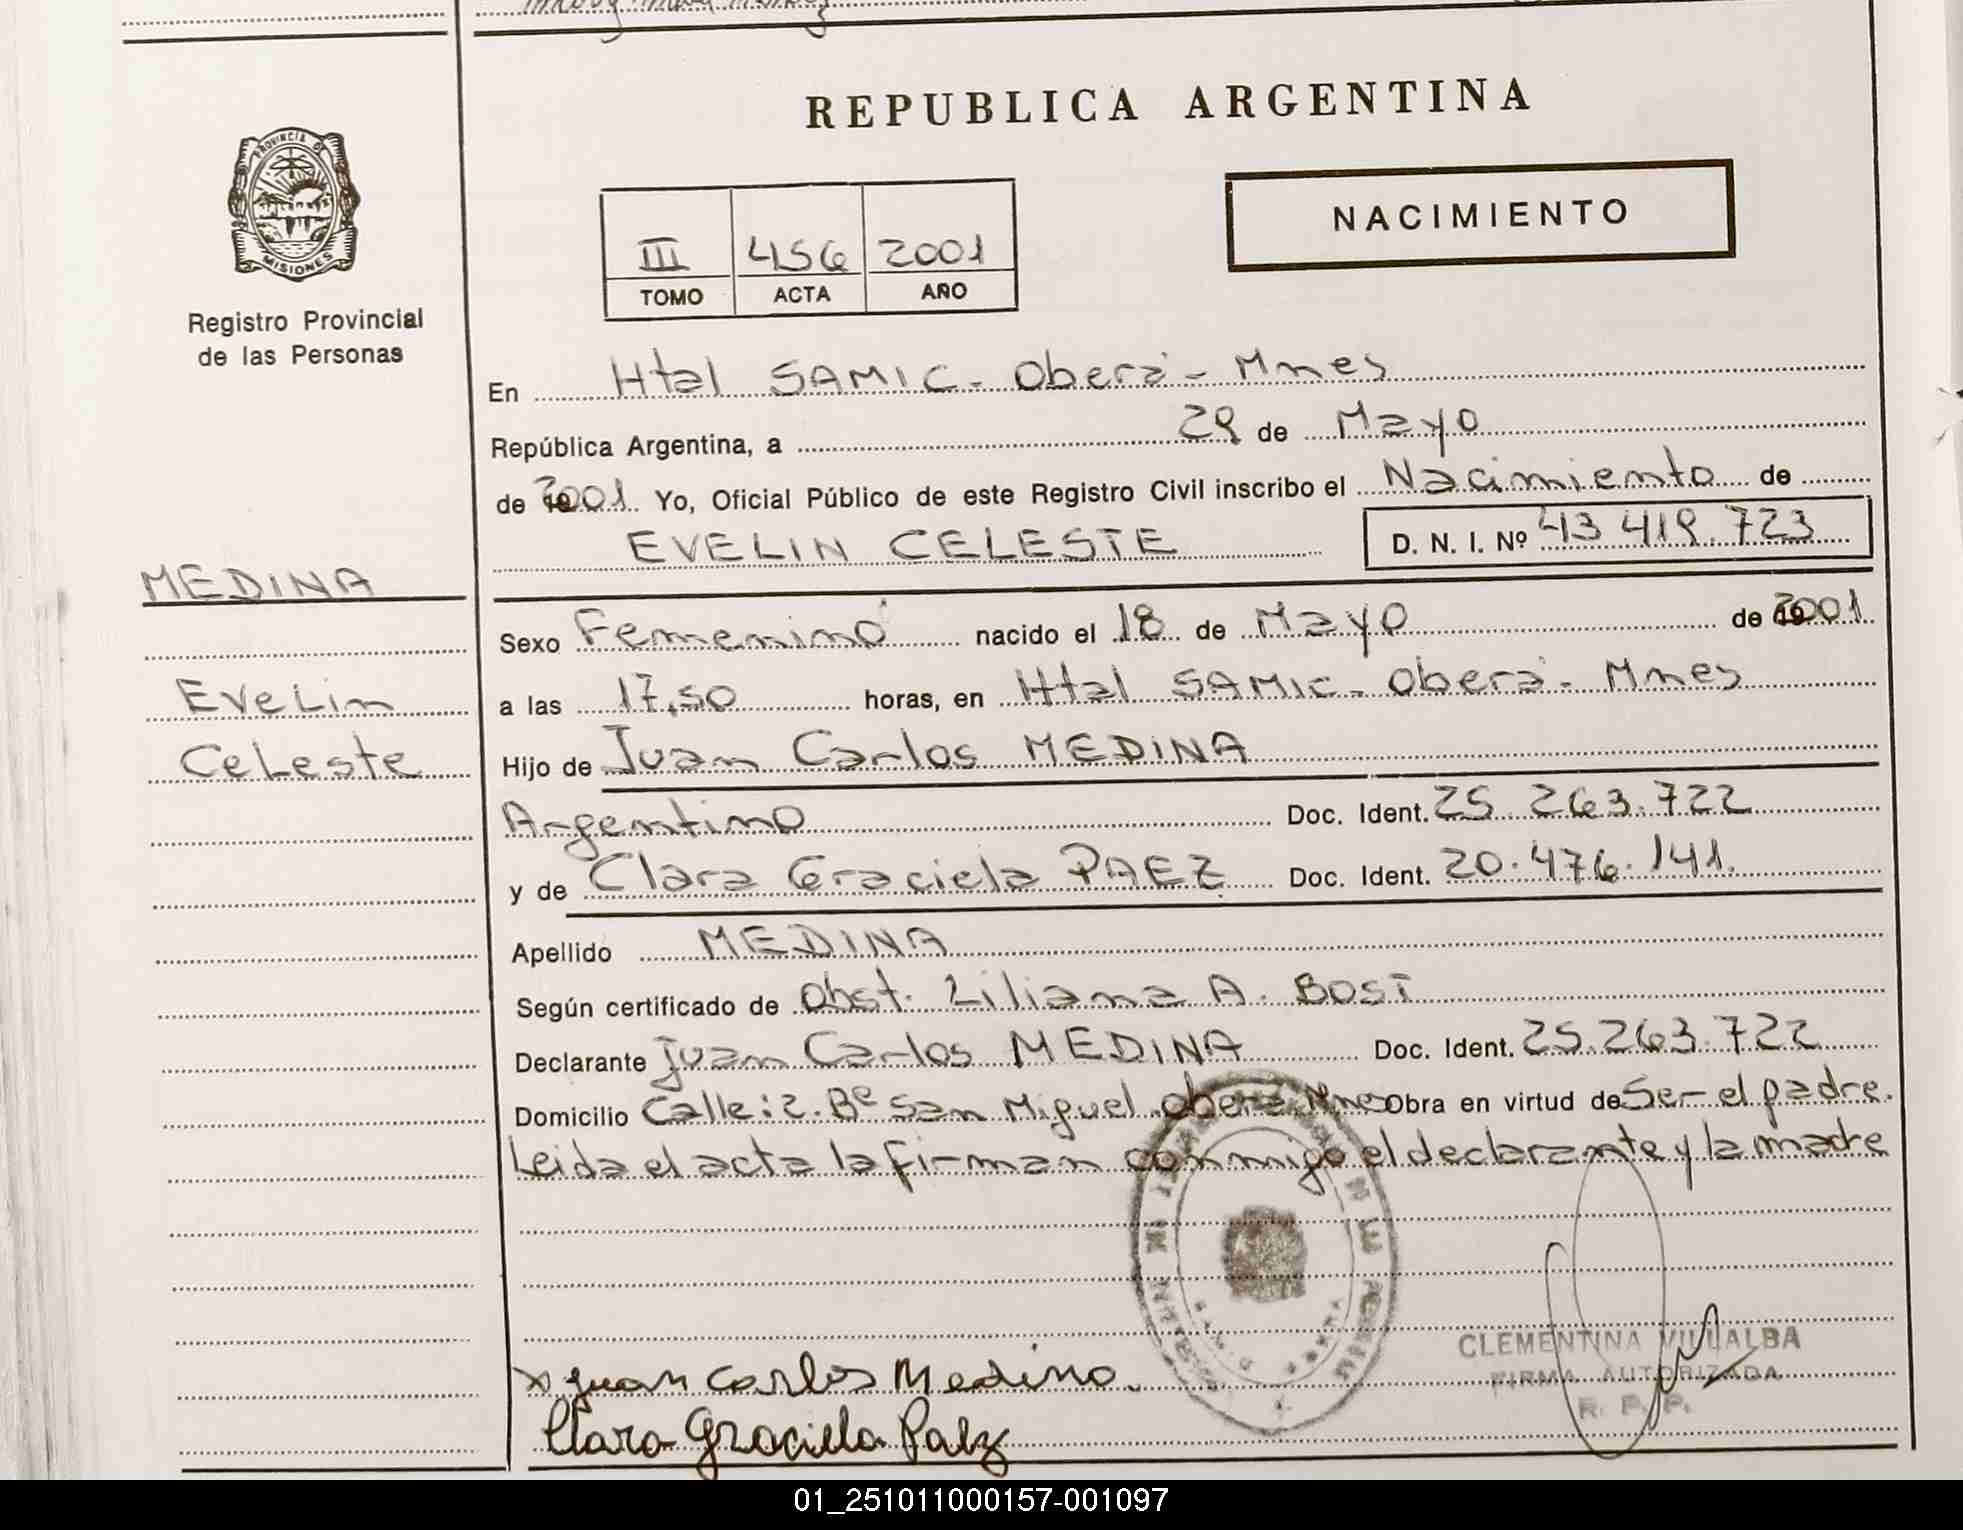 REPUBLICA ARGENTINA
PROVINCIA DE
MISIONES
Registro Provincial
de las Personas
III 456 2001
TOMO ACTA AÑO
NACIMIENTO
En Htal SAMIC - Oberá - Mnes
República Argentina, a 29 de Mayo
de 2001 Yo, Oficial Público de este Registro Civil inscribo el Nacimiento de
EVELIN CELESTE D. N. I. Nº 43 419.723
MEDINA
Evelin
Celeste
Sexo Femenino nacido el 18 de Mayo de 2001
a las 17,50 horas, en Htal SAMIC - Oberá - Mnes
Hijo de Juan Carlos MEDINA
Argentino Doc. Ident. 25.263.722
y de Clara Graciela PAEZ Doc. Ident. 20.476.141.
Apellido MEDINA
Según certificado de Obst. Liliana A. Bosi
Declarante Juan Carlos MEDINA Doc. Ident. 25.263.722
Domicilio Calle: 2. Bº San Miguel. Oberá Mnes Obra en virtud de Ser el padre.
Leida el acta la firman conmigo el declarante y la madre
CLEMENTINA VILLALBA
FIRMA AUTORIZADA
R. P. P.
x Juan Carlos Medina.
Clara Graciela Paez
01_251011000157-001097